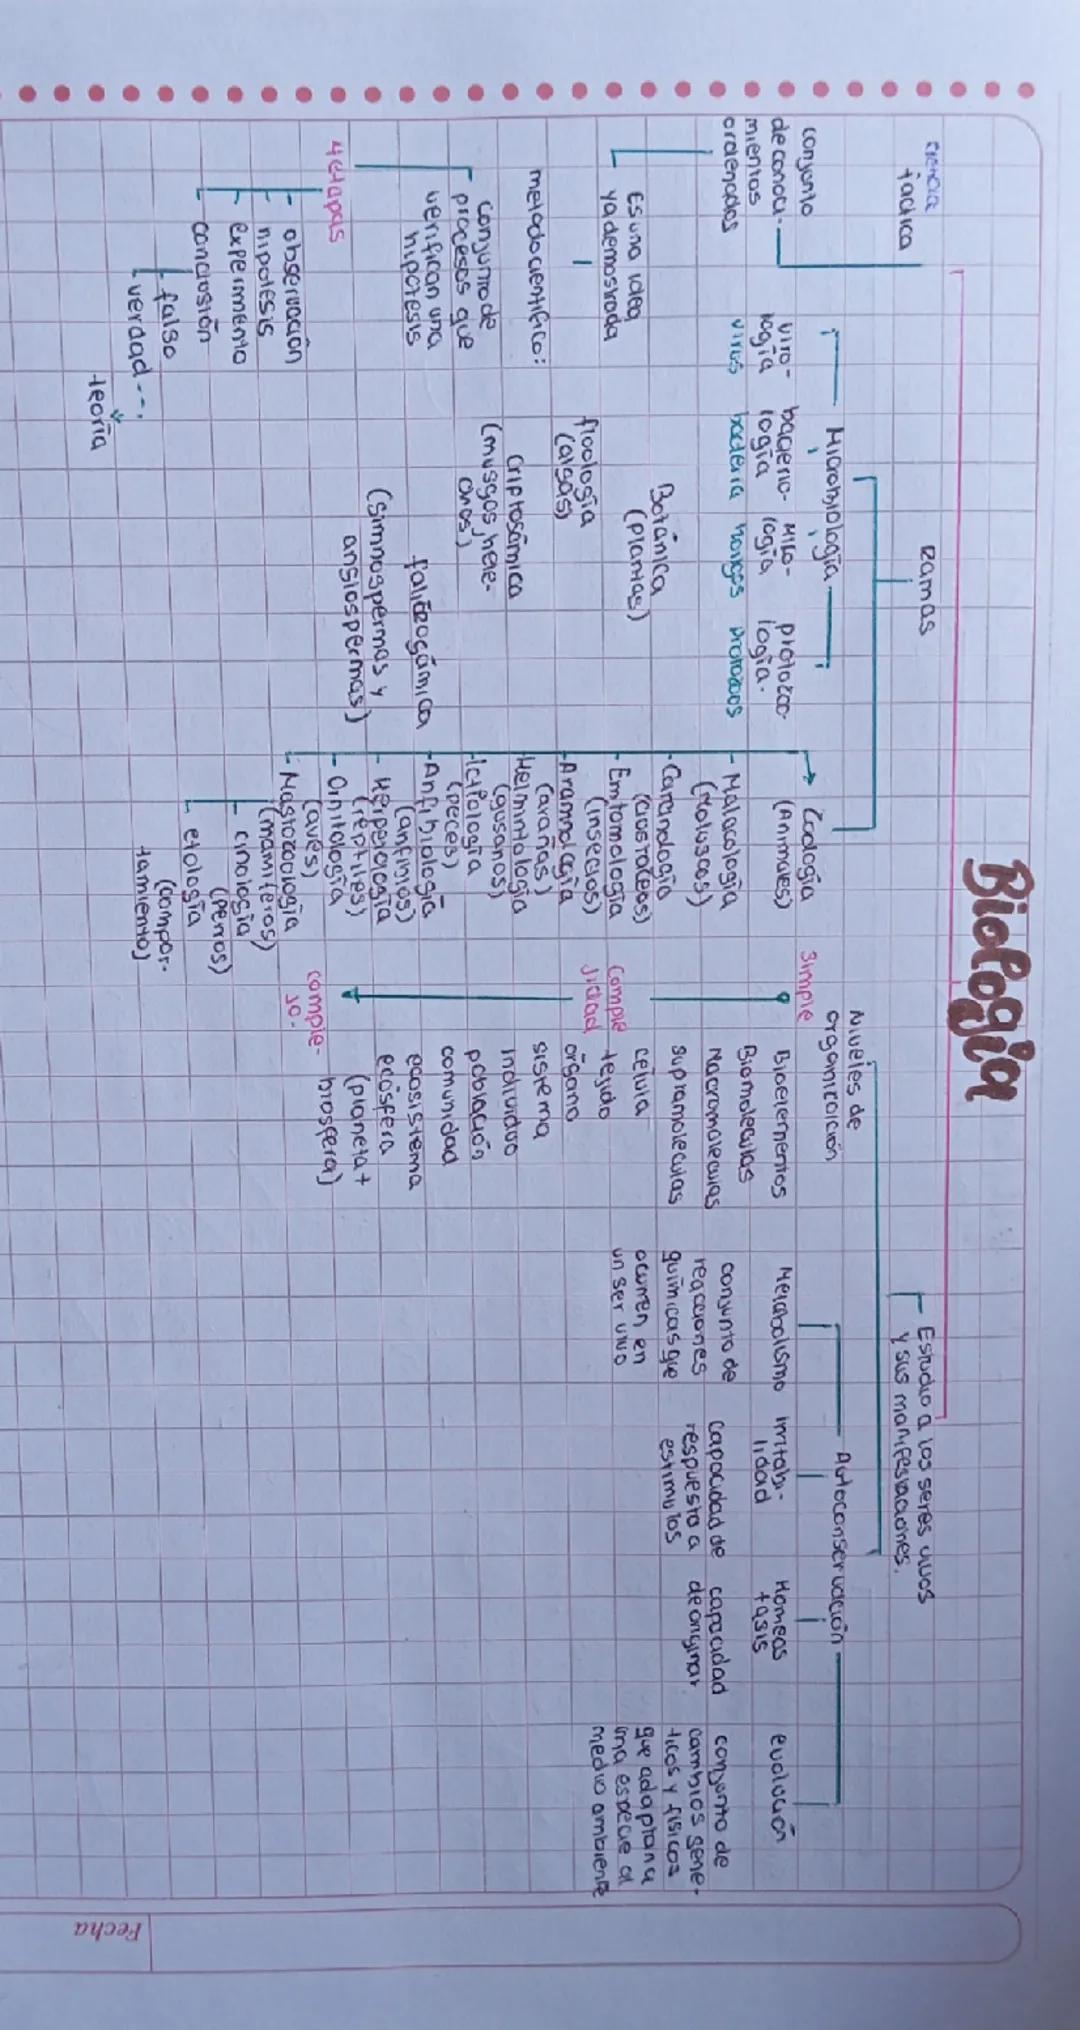 Biología
Estudio a los seres vivos
y sus manifestaciones.
ciencia
fáctica
conjunto
de conoci-
mientos
ordenados
Es una idea
ya demostrada
metodo científico:
conjunto de
procesos que
verifican una
hipótesis
4 etapas
observación
hipótesis
experimento
conclusión
falso
verdad
teoría
Ramas
Microbiología
viro-
logía
virus
bacterio-
logía
bacteria
Mico-
logía
hongos
protozoo-
logía.
protozoos
Botánica
(plantas)
ficología
(algas)
criptogámica
(musgos, hele-
chos)
fanerogámica
(Gimnospermas y
angiospermas)
Zoología
(Animales)
Malacología
(Moluscos)
Carcinología
(crustáceos)
Entomología
(insectos)
Aracnología
(arañas)
Helmintología
(gusanos)
Ictiología
(peces)
Anfibiología
(anfibios)
Herpetología
(reptiles)
Ornitología
(aves)
Mastozoología
(mamíferos)
cinología
(perros)
etología
(compor-
tamiento)
Niveles de
organización
simple
Comple
jidad
comple-
jo.
Bioelementos
Biomoleculas
Macromoleculas
supramoleculas
célula
tejido
órgano
sistema
individuo
población
comunidad
ecosistema
ecósfera
(planeta +
biosfera)
Autoconservación
Metabolismo
conjunto de
reacciones
químicas que
ocurren en
un ser vivo
irritabi-
lidad
capacidad de
respuesta a
estimulos
Homeos
tasis
capacidad
de originar
evolución
conjunto de
cambios gene-
ticos y físicos
que adaptan a
una especie al
medio ambiente
Fecha